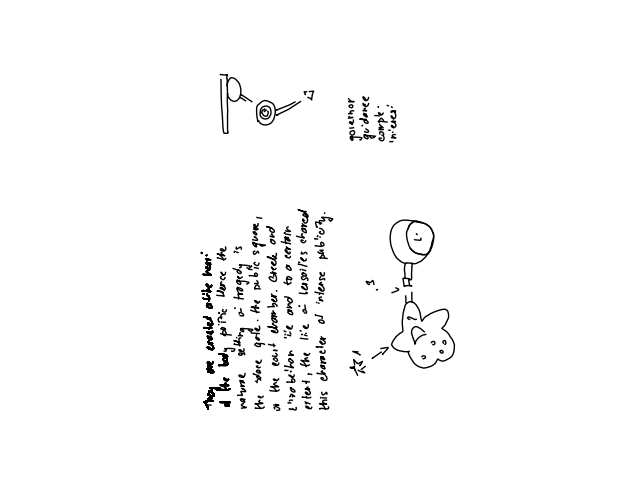 They are enacted at the heart
of the body politic Hence the
natural setting of tragedy is
the palace gate. the public square,
or the court chamber. Greek and
Elizabethan life and to a certain
extent, the life of Versailles shared
this character of intense publicity.
governor
guidance